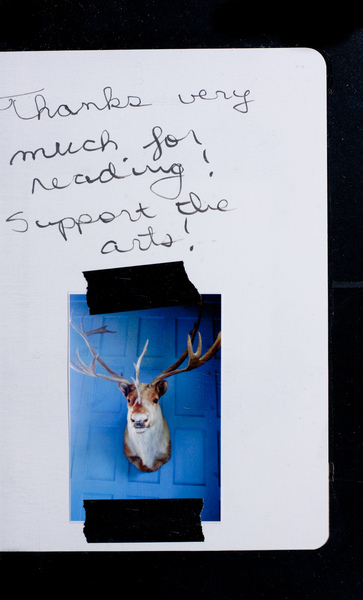 Thanks very
much for
reading!
Support the
arts!